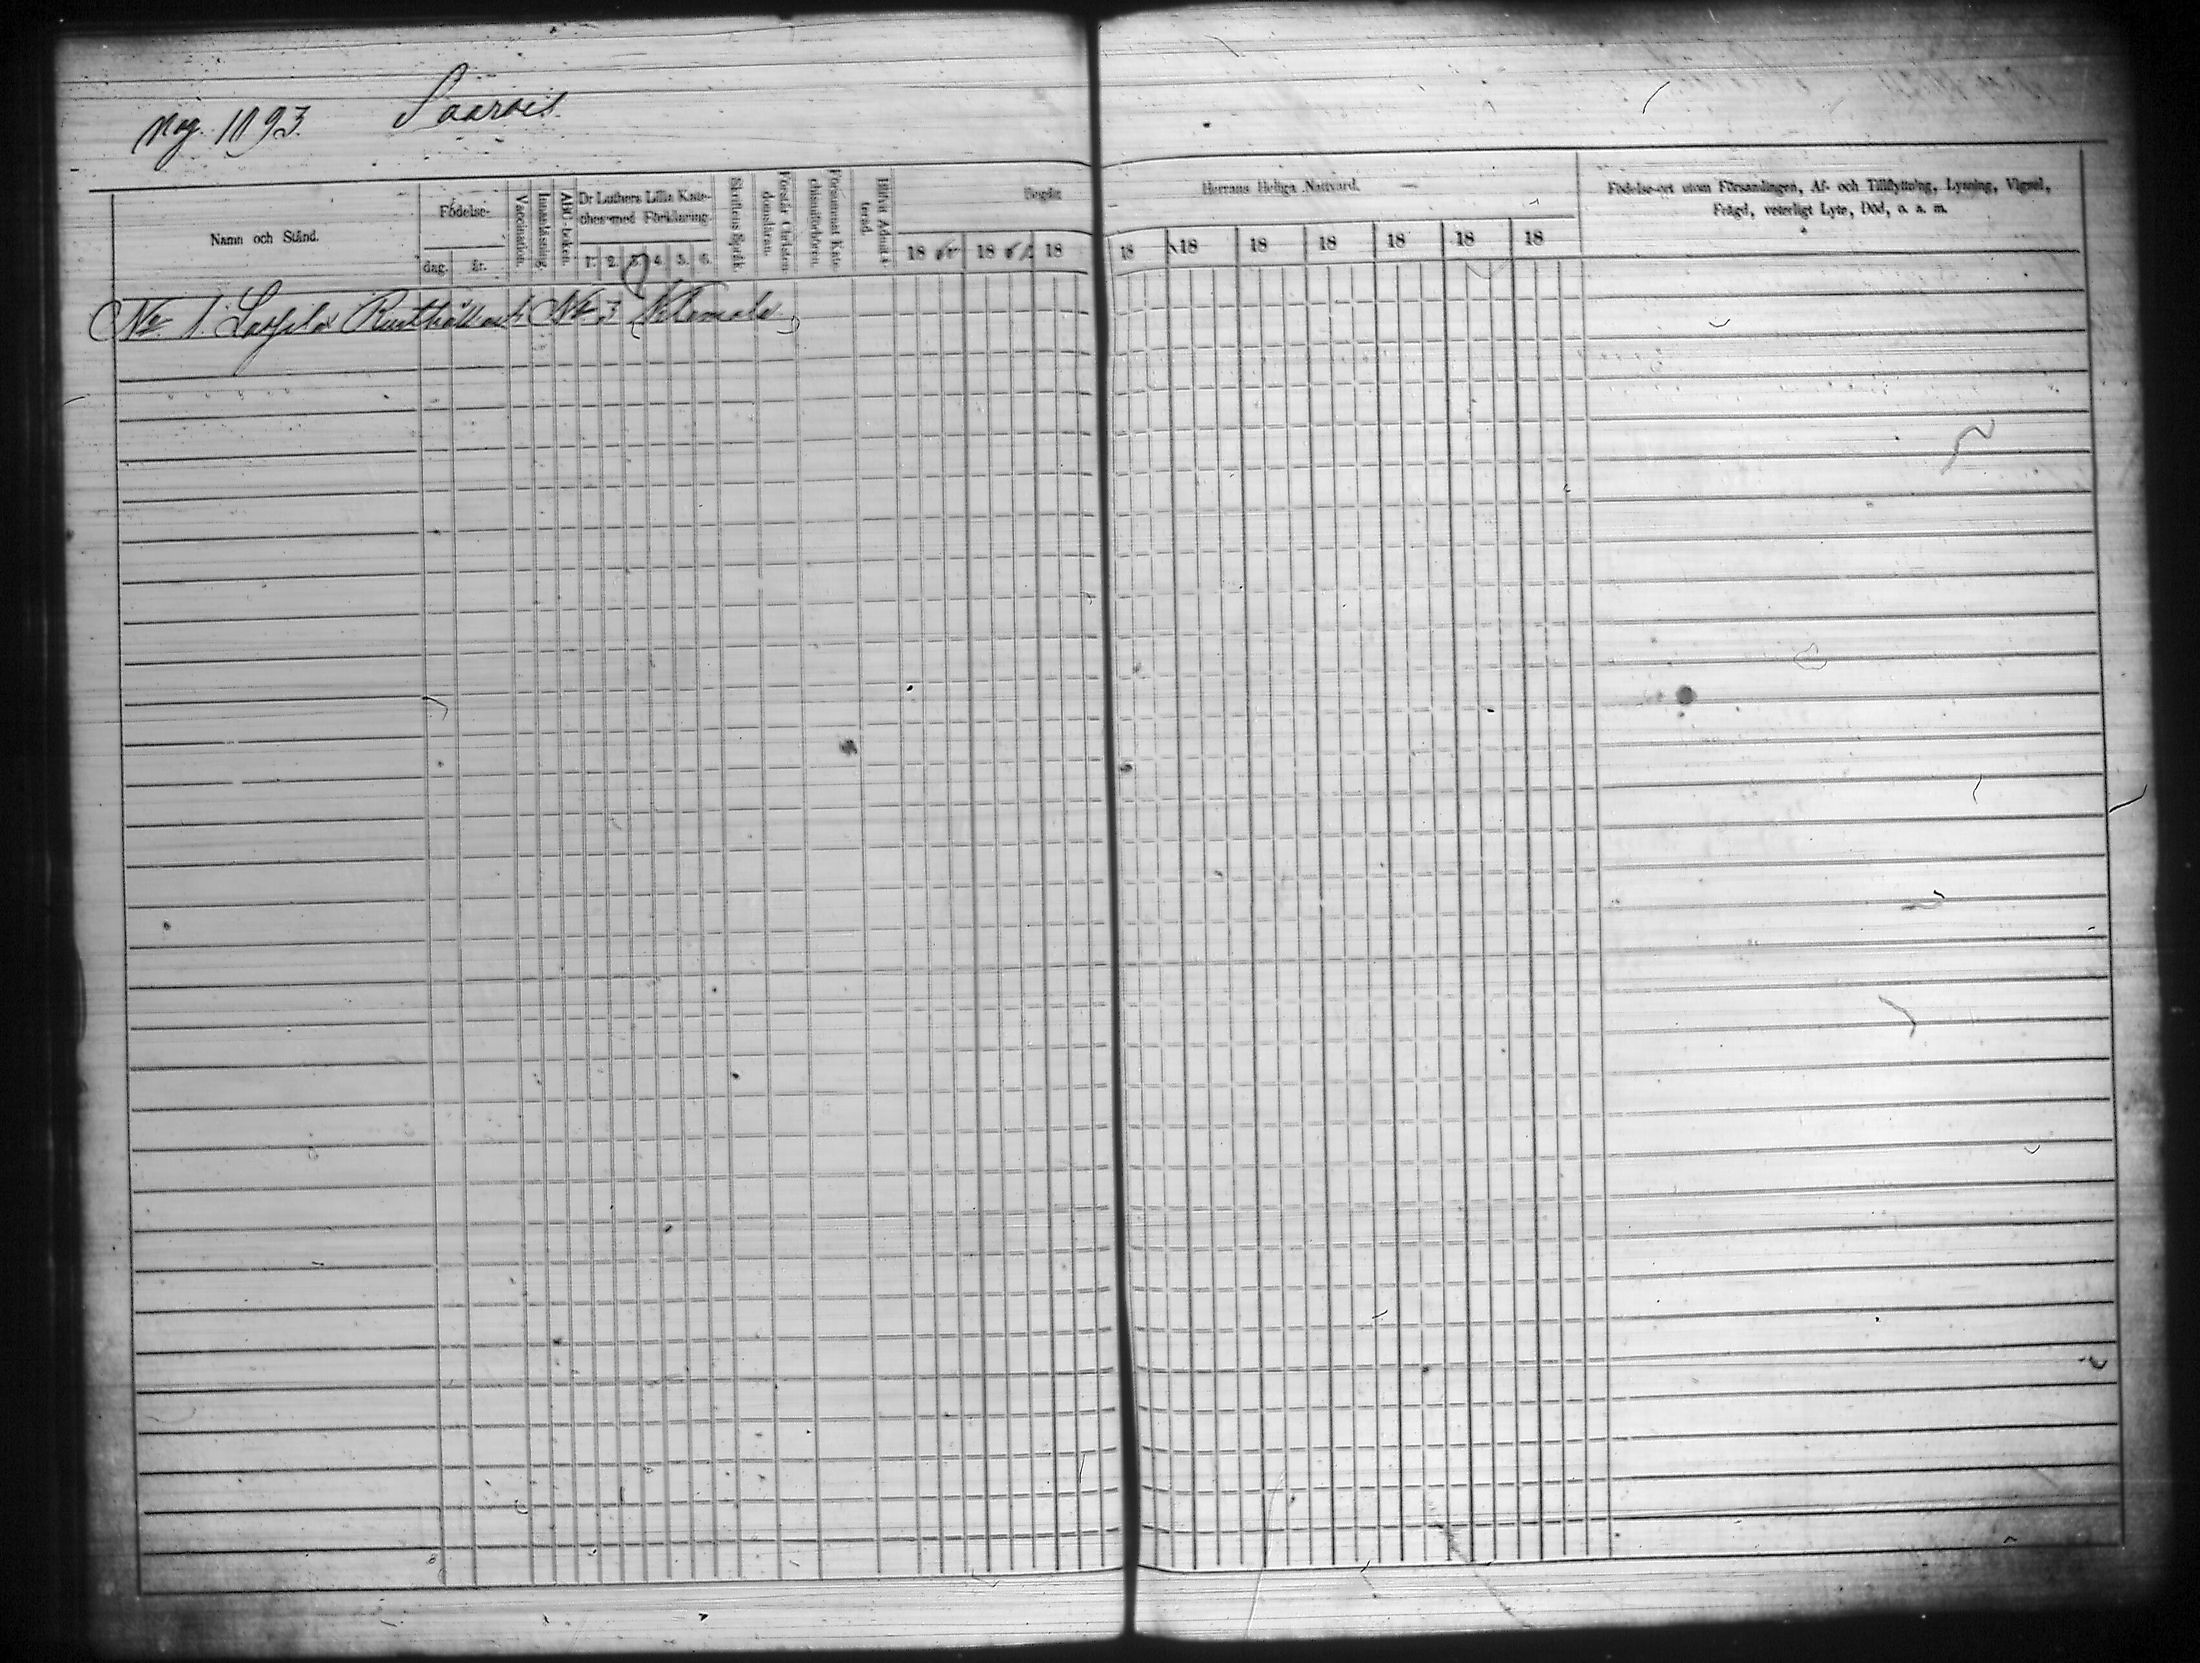 Pag. 1193. Saarois
Namn och Stånd.
Födelse-
dag.
år.
Vaccination.
Innanläsning.
ABC-boken.
Dr Luthers Lilla Kate-
ches med Förklaring.
1. 2. 3. 4. 5. 6.
Skriftens Språk.
Förstår Christen-
domsläran.
Försummat Kate-
chismiförhören.
Blifvit Admit-
terad.
Begått
Herrans Heliga Nattvard.
18 18 18 18 18 18 18 18 18 18
Födelse-ort utom Församlingen, Af- och Tillflyttning, Lysning, Vigsel,
Frägd, veterligt Lyte, Död, o. a. m.
No 1. Rusthåll No 3